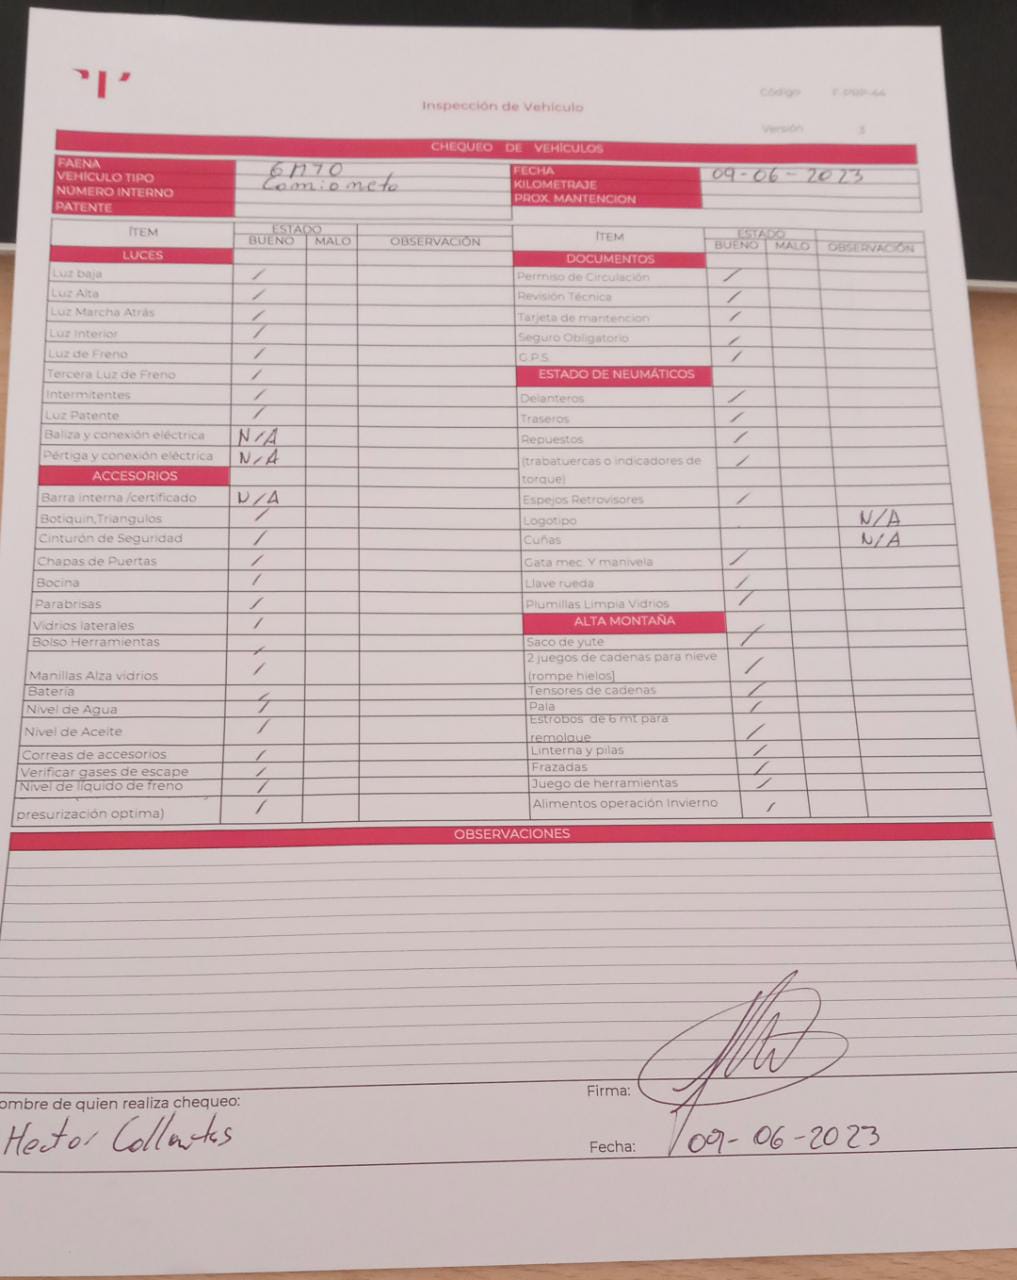 Inspección de Vehículo
Código F-PRP-44
Versión 3
CHEQUEO DE VEHÍCULOS
FAENA 6M70
VEHÍCULO TIPO Camioneta
NÚMERO INTERNO
PATENTE
FECHA 09-06-2023
KILOMETRAJE
PROX. MANTENCION
ÍTEM ESTADO
BUENO MALO OBSERVACIÓN
LUCES
Luz baja /
Luz Alta /
Luz Marcha Atrás /
Luz Interior /
Luz de Freno /
Tercera Luz de Freno /
Intermitentes /
Luz Patente /
Baliza y conexión eléctrica N/A
Pértiga y conexión eléctrica N/A
ACCESORIOS
Barra interna /certificado N/A
Botiquin,Triangulos /
Cinturón de Seguridad /
Chapas de Puertas /
Bocina /
Parabrisas /
Vidrios laterales /
Bolso Herramientas /
Manillas Alza vidrios /
Batería /
Nivel de Agua /
Nivel de Aceite /
Correas de accesorios /
Verificar gases de escape /
Nivel de líquido de freno /
presurización optima) /
ÍTEM ESTADO
BUENO MALO OBSERVACIÓN
DOCUMENTOS
Permiso de Circulación /
Revisión Técnica /
Tarjeta de mantencion /
Seguro Obligatorio /
G.P.S. /
ESTADO DE NEUMÁTICOS
Delanteros /
Traseros /
Repuestos /
(trabatuercas o indicadores de /
torque)
Espejos Retrovisores /
Logotipo N/A
Cuñas N/A
Gata mec. Y manivela /
Llave rueda /
Plumillas Limpia Vidrios /
ALTA MONTAÑA
Saco de yute /
2 juegos de cadenas para nieve /
(rompe hielos)
Tensores de cadenas /
Pala /
Estrobos de 6 mt para /
remolque
Linterna y pilas /
Frazadas /
Juego de herramientas /
Alimentos operación Invierno /
OBSERVACIONES
ombre de quien realiza chequeo:
Hector Collantes
Firma:
Fecha: 09-06-2023